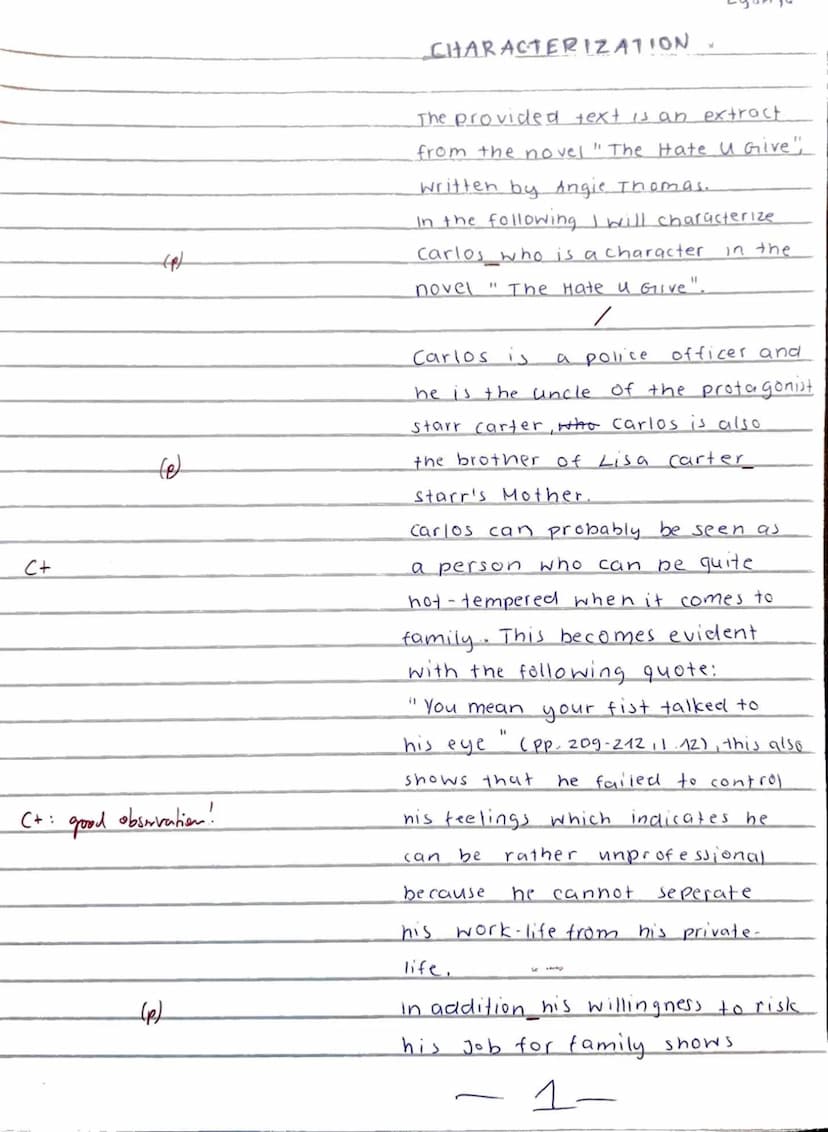 CHARACTERIZATION.
The provided text is an extract
from the novel "The Hate U Give",
written by Angie Thomas.
In the following I will characterize
(p) Carlos_who is a character in the
novel "The Hate U Give".
/
Carlos is a police officer and
he is the uncle of the protagonist
starr carter, who Carlos is also
(p) the brother of Lisa Carter_
starr's Mother.
Carlos can probably be seen as
C+ a person who can be quite
hot-tempered when it comes to
family. This becomes evident
with the following quote:
"You mean your fist talked to
his eye" (pp. 209-212, l. 12), this also
shows that he failed to control
C+: good observation! his feelings which indicates he
can be rather unprofessional
because he cannot seperate
his work-life from his private-
life.
(p) In addition_his willingness to risk
his job for family shows
- 1 -